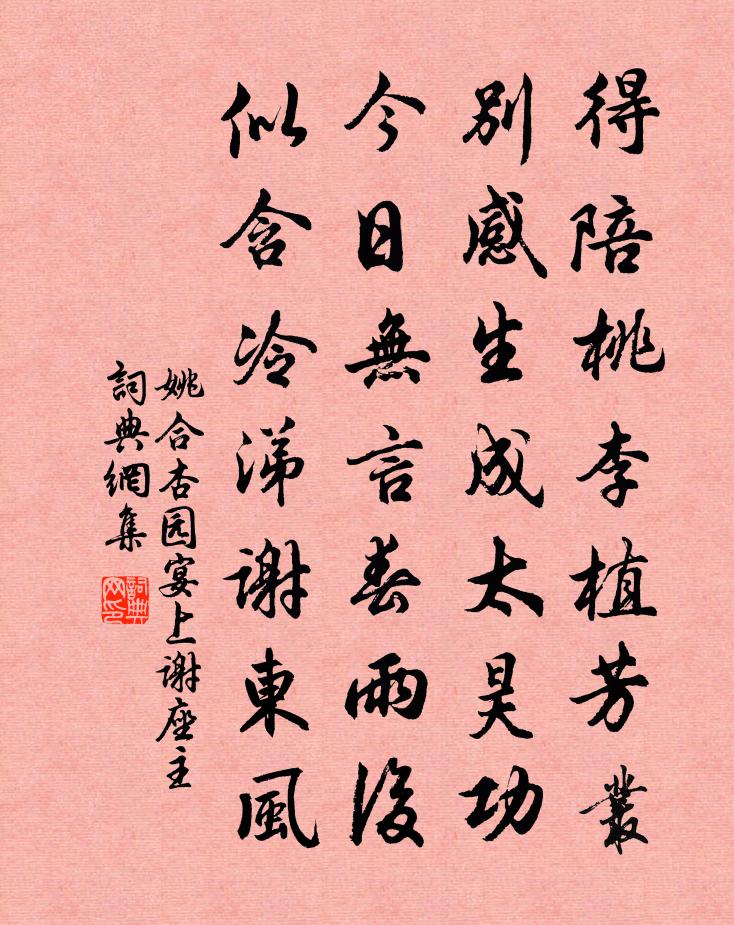 得陪桃李植芳叢
別感生成太昊功
今日無言春雨後
似含冷涕謝東風
姚合杏园宴上谢座主
詞典網集
詞典网印